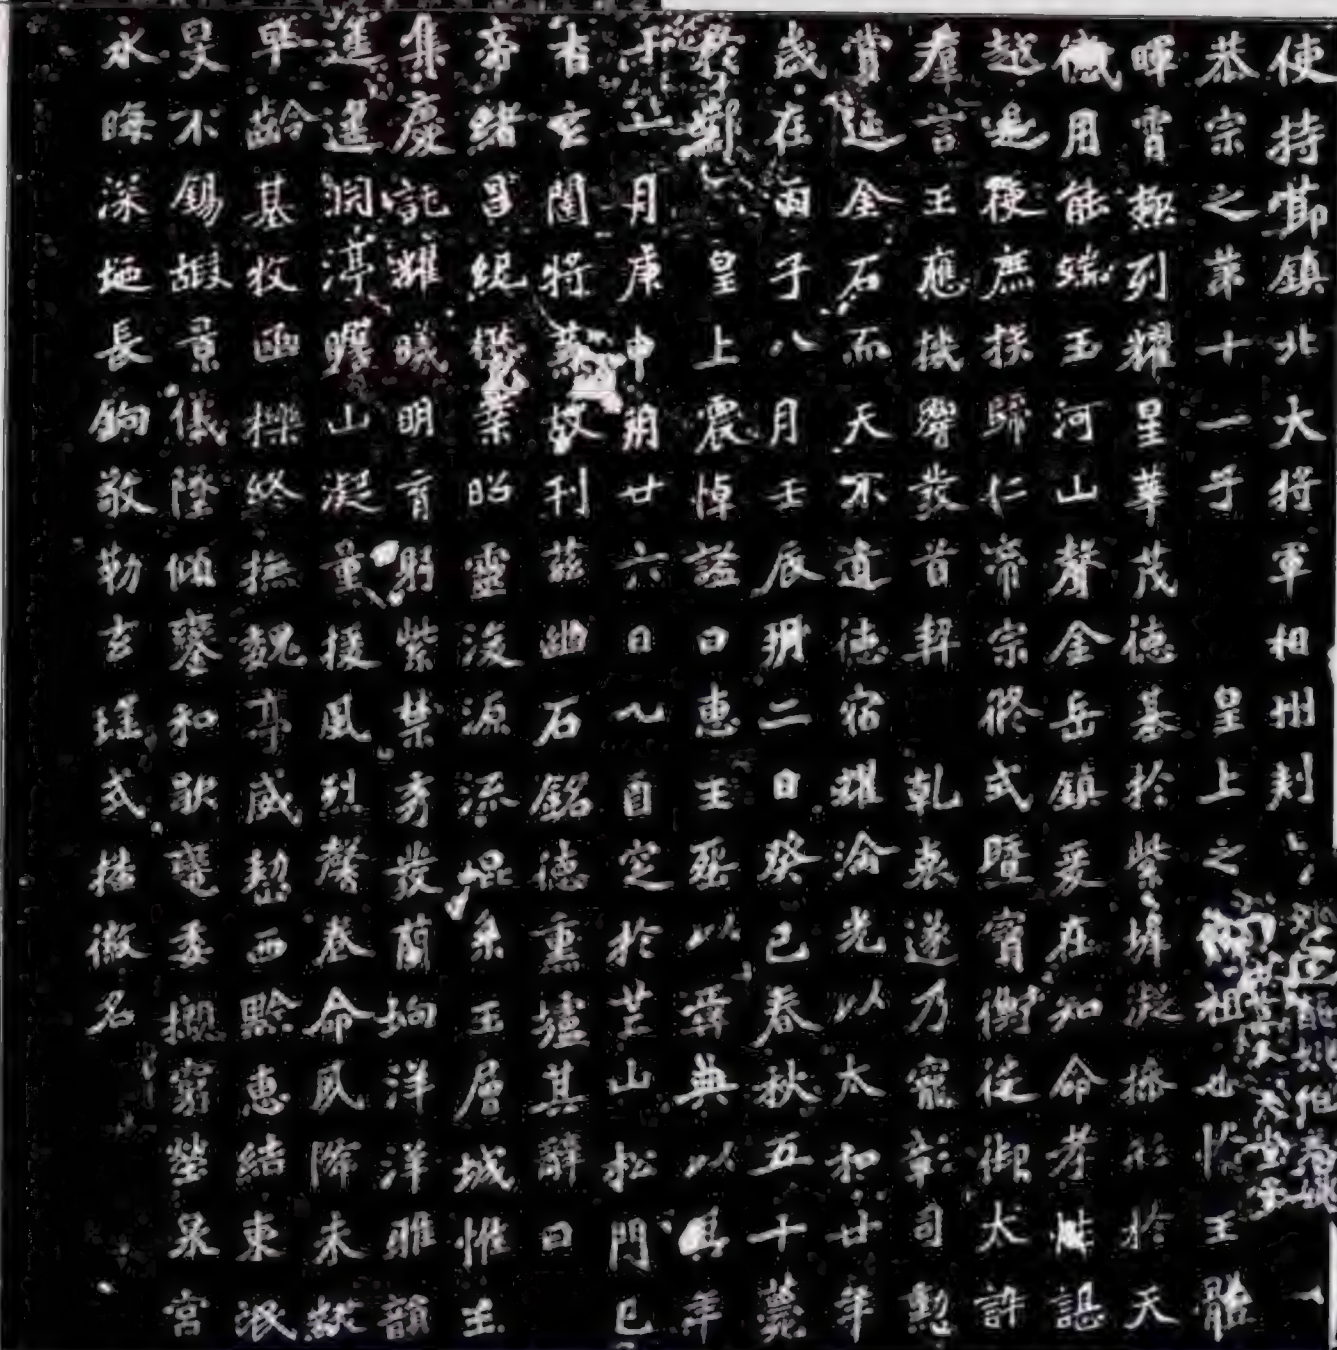 使持節鎮北大將軍相州刺
恭宗之第十一子　皇上之從祖也惟王體
暉霄極列耀星華茂德基於紫墀凝操形於天
感用能端玉河山聲金岳鎮爰在知命孝性諶
越是使庶族歸仁帝宗攸式暨寶衡徙御大訊
羣言王應機響發首契　乾衷遂乃寵彰司勳
賞延金石而天不遺德宿耀淪光以太和廿年
歲在丙子八月壬辰朔二日癸巳春秋五十薨
於鄴　皇上震悼諡曰惠王葬以彝典以其年
十一月庚申朔廿六日乙酉窆於芒山松門已
杳玄闥將蕪故刊茲幽石銘德熏壚其辭曰
帝緒昌紀懋業昭靈浚源流崐系玉層城惟王
集慶託耀曦明育躬紫禁秀發蘭坰洋洋雅韻
遙遙淵渟瞻山凝量援風烈馨卷命夙降未黻
早齡基牧幽櫟終撫魏亭威懾西黔惠結東氓
旻不錫嘏景儀墜傾鑾和歇轡委櫬窮塋泉宮
永晦深埏長扃敬勒玄瑤式播徽名